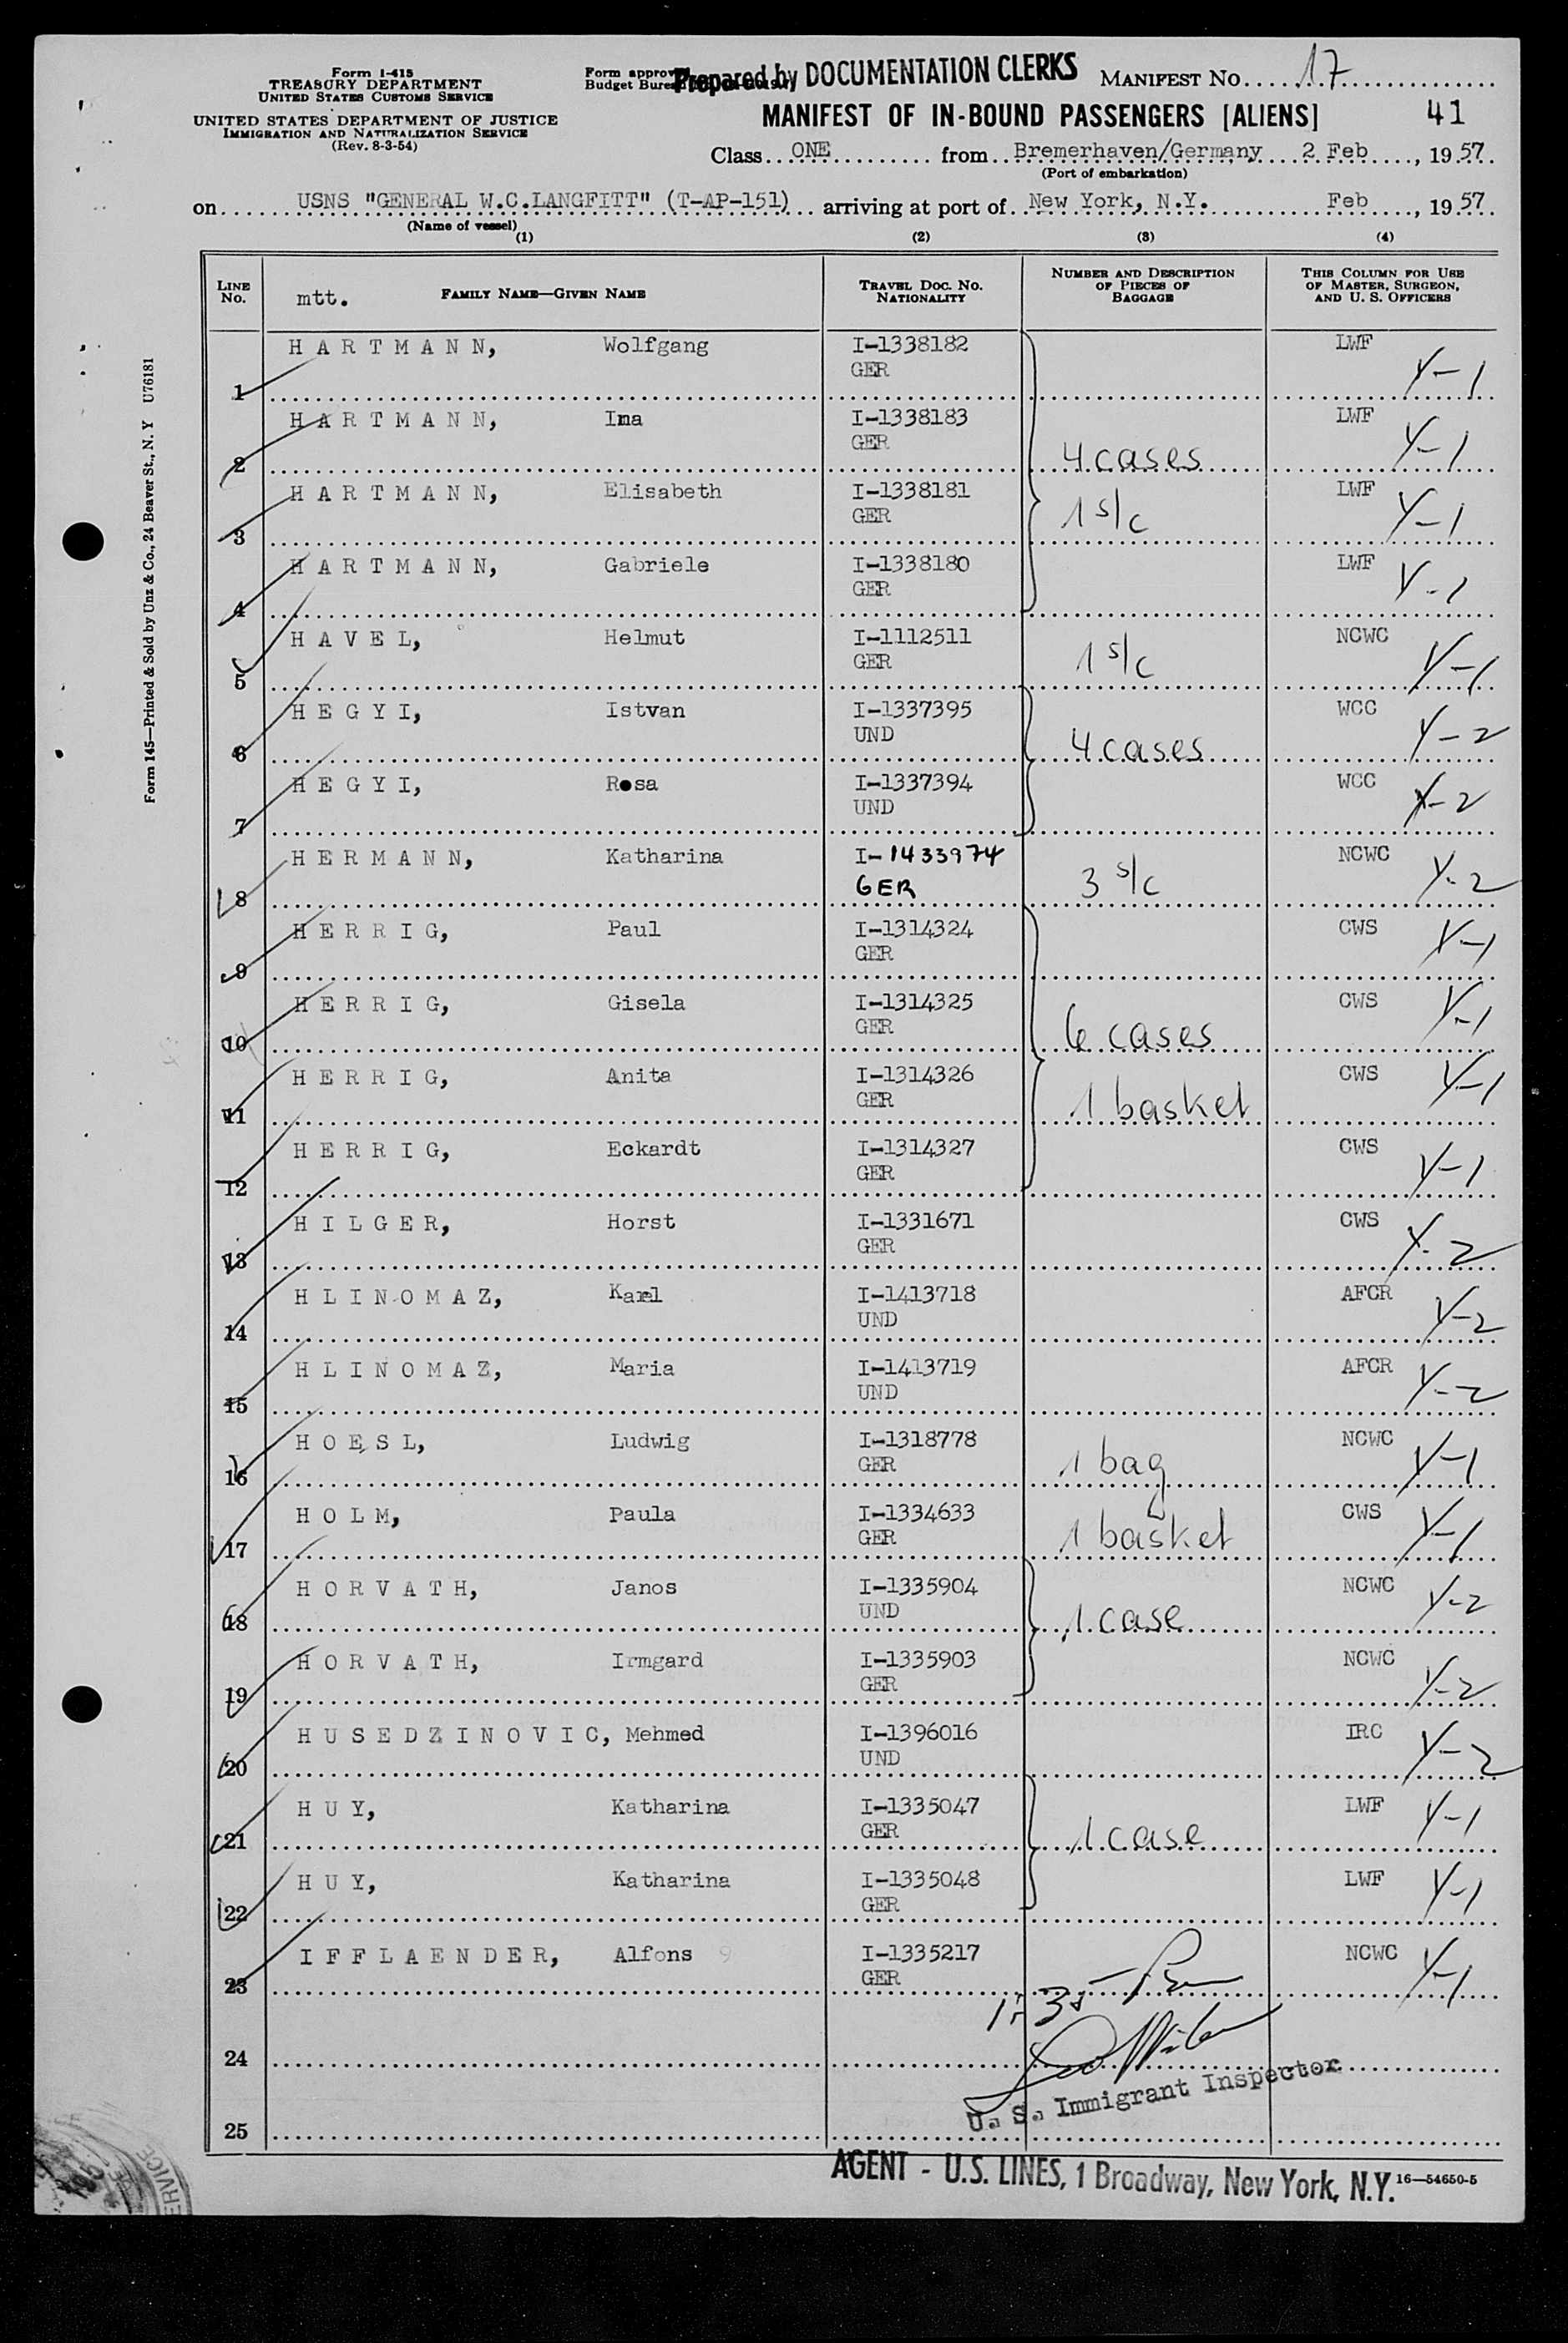 Form I-415
TREASURY DEPARTMENT
UNITED STATES CUSTOMS SERVICE
UNITED STATES DEPARTMENT OF JUSTICE
IMMIGRATION AND NATURALIZATION SERVICE
(Rev. 8-3-54)
Form approved
Budget Bureau
Prepared by DOCUMENTATION CLERKS
MANIFEST NO. 17
MANIFEST OF IN-BOUND PASSENGERS [ALIENS] 41
Class ONE from Bremerhaven/Germany 2 Feb, 1957.
(Port of embarkation)
on USNS "GENERAL W.C.LANGFITT" (T-AP-151) arriving at port of New York, N.Y. Feb, 1957.
(Name of vessel)
(1) (2) (3) (4)
LINE NO. mtt. FAMILY NAME—GIVEN NAME TRAVEL DOC. NO. NATIONALITY NUMBER AND DESCRIPTION OF PIECES OF BAGGAGE THIS COLUMN FOR USE OF MASTER, SURGEON, AND U. S. OFFICERS
1 HARTMANN, Wolfgang I-1338182 GER LWF Y-1
2 HARTMANN, Ina I-1338183 GER 4 cases LWF Y-1
3 HARTMANN, Elisabeth I-1338181 GER 1 s/c LWF Y-1
4 HARTMANN, Gabriele I-1338180 GER LWF Y-1
5 HAVEL, Helmut I-1112511 GER 1 s/c NCWC Y-1
6 HEGYI, Istvan I-1337395 UND 4 cases WCC Y-2
7 HEGYI, Rosa I-1337394 UND WCC Y-2
8 HERMANN, Katharina I-1433974 GER 3 s/c NCWC Y-2
9 HERRIG, Paul I-1314324 GER CWS Y-1
10 HERRIG, Gisela I-1314325 GER 6 cases CWS Y-1
11 HERRIG, Anita I-1314326 GER 1 basket CWS Y-1
12 HERRIG, Eckardt I-1314327 GER CWS Y-1
13 HILGER, Horst I-1331671 GER CWS Y-2
14 HLINOMAZ, Karel I-1413718 UND AFCR Y-2
15 HLINOMAZ, Maria I-1413719 UND AFCR Y-2
16 HOESL, Ludwig I-1318778 GER 1 bag NCWC Y-1
17 HOLM, Paula I-1334633 GER 1 basket CWS Y-1
18 HORVATH, Janos I-1335904 UND 1 case NCWC Y-2
19 HORVATH, Irmgard I-1335903 GER NCWC Y-2
20 HUSEDZINOVIC, Mehmed I-1396016 UND IRC Y-2
21 HUY, Katharina I-1335047 GER 1 case LWF Y-1
22 HUY, Katharina I-1335048 GER LWF Y-1
23 IFFLAENDER, Alfons I-1335217 GER NCWC Y-1
24
25
U. S. Immigrant Inspector
AGENT - U.S. LINES, 1 Broadway, New York, N.Y. 16—54650-5
Form 145—Printed & Sold by Unz & Co., 24 Beaver St., N. Y U76181